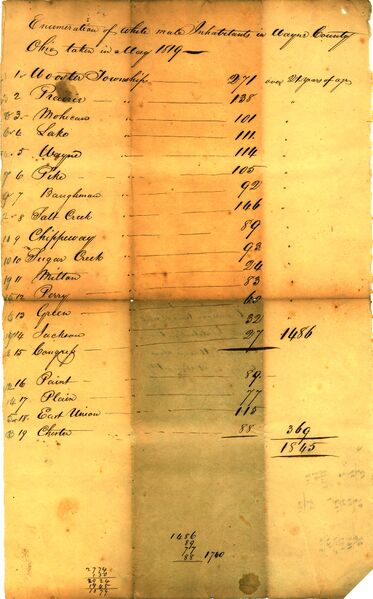 Enumeration of White male Inhabitants in Wayne County
Ohio taken in May 1819
1 Wooster Township 271 over 21 years of age
2 Prairie 138 "
3 Mohican 101 "
4 Lake 111 "
5 Wayne 114 "
6 Pike 105 "
7 Baughman 92 "
8 Salt Creek 146 "
9 Chippeway 89 "
10 Sugar Creek 93 "
11 Milton 24 "
12 Perry 83 "
13 Green 60 "
14 Jackson 32
15 Congress 27 1486
16 Paint 89
17 Plain 77
18 East Union 115
19 Chester 88 369
1845
1486
89
77
88 1740